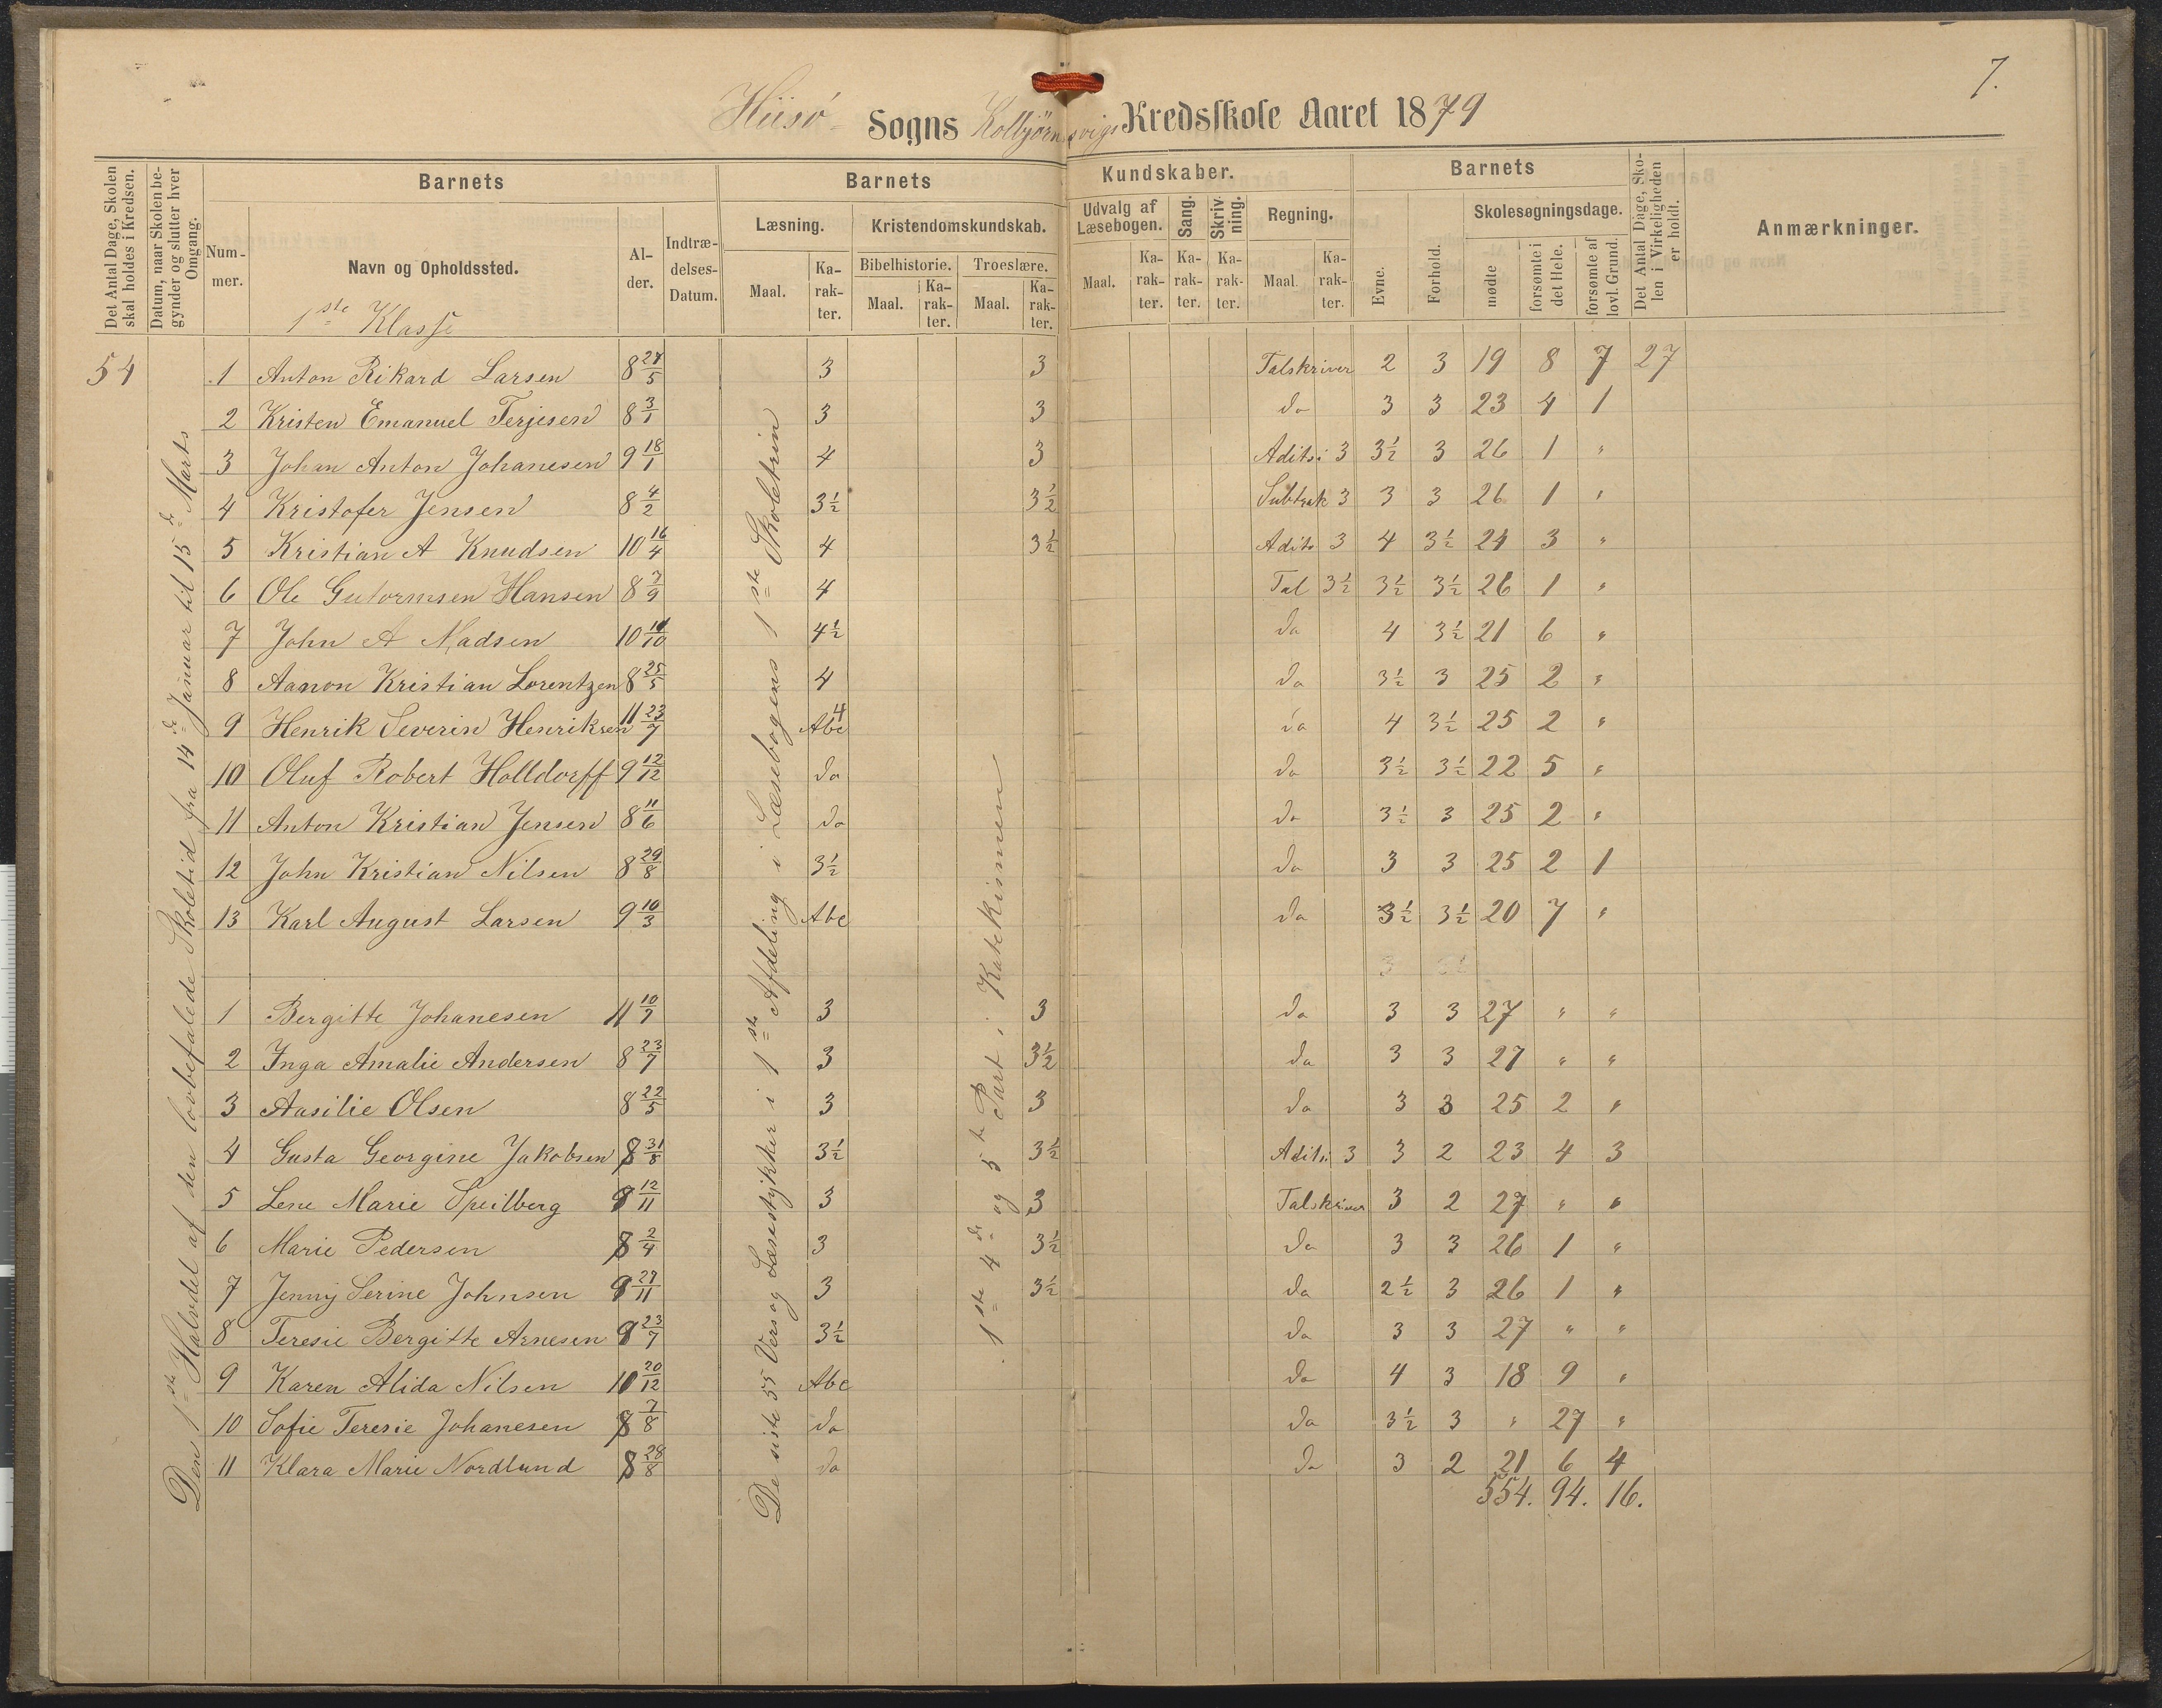 7.
Hiisø Sogns Kolbjörnsvigs Kredsskole Aaret 1879
Det Antal Dage, Skolen skal holdes i Kredsen.
Datum, naar Skolen begynder og slutter hver Omgang.
Barnets
Nummer.
Navn og Opholdssted.
Alder.
Indtrædelses-Datum.
1ste Klasse
Barnets Kundskaber.
Læsning.
Maal.
Karakter.
Kristendomskundskab.
Bibelhistorie.
Maal.
Karakter.
Troeslære.
Maal.
Karakter.
Udvalg af Læsebogen.
Maal.
Karakter.
Sang.
Karakter.
Skrivning.
Karakter.
Regning.
Maal.
Karakter.
Barnets
Evne.
Forhold.
Skolesøgningsdage.
mødte
forsømte i det Hele.
forsømte af lovl. Grund.
Det Antal Dage, Skolen i Virkeligheden er holdt.
Anmærkninger.
54
Den 1ste Halvdel af den lovbefalede Skoletid fra 14de Januar til 15de Marts
De siste 55 Vers og Læsestykker i 1ste Afdeling i Læsebogens 1ste Skoletrin
1ste 4de og 5te Part i Katekismen
1 Anton Rikard Larsen 8 27/5 3 3 Talskriver 2 3 19 8 7 27
2 Kristen Emanuel Terjesen 8 3/1 3 3 do 3 3 23 4 1
3 Johan Anton Johanesen 9 18/1 4 3 Aditsi 3 3½ 3 26 1 "
4 Kristofer Jensen 8 4/2 3½ 3½ Subtrak 3 3 3 26 1 "
5 Kristian A Knudsen 10 16/4 4 3½ Adits 3 4 3½ 24 3 "
6 Ole Gutormsen Hansen 8 7/9 4 Tal 3½ 3½ 3½ 26 1 "
7 John A Madsen 10 11/10 4½ do 4 3½ 21 6 "
8 Aanon Kristian Lorentzen 8 25/5 4 do 3½ 3 25 2 "
9 Henrik Severin Henriksen 11 23/7 Abc 4 do 4 3½ 25 2 "
10 Oluf Robert Holldorff 9 12/12 do do 3½ 3½ 22 5 "
11 Anton Kristian Jensen 8 11/6 do do 3½ 3 25 2 "
12 John Kristian Nilsen 8 29/8 3½ do 3 3 25 2 1
13 Karl August Larsen 9 10/3 Abc do 3½ 3½ 20 7 "
1 Bergitte Johanesen 11 10/7 3 3 do 3 3 27 " "
2 Inga Amalie Andersen 8 23/7 3 3½ do 3 3 27 " "
3 Aasilie Olsen 8 22/5 3 3 do 3 3 25 2 "
4 Gusta Georgine Jakobsen 8 31/8 3½ 3½ Aditsi 3 3 2 23 4 3
5 Lene Marie Speilberg 8 12/11 3 3 Talskriver 3 2 27 " "
6 Marie Pedersen 8 2/4 3 3½ do 3 3 26 1 "
7 Jenny Serine Johnsen 9 27/11 3 3½ do 2½ 3 26 1 "
8 Teresie Bergitte Arnesen 9 23/7 3½ do 3 3 27 " "
9 Karen Alida Nilsen 10 20/12 Abc do 4 3 18 9 "
10 Sofie Teresie Johanesen 8 7/8 do do 3½ 3 " 27 "
11 Klara Marie Nordlund 8 28/8 do do 3 2 21 6 4
554. 94. 16.